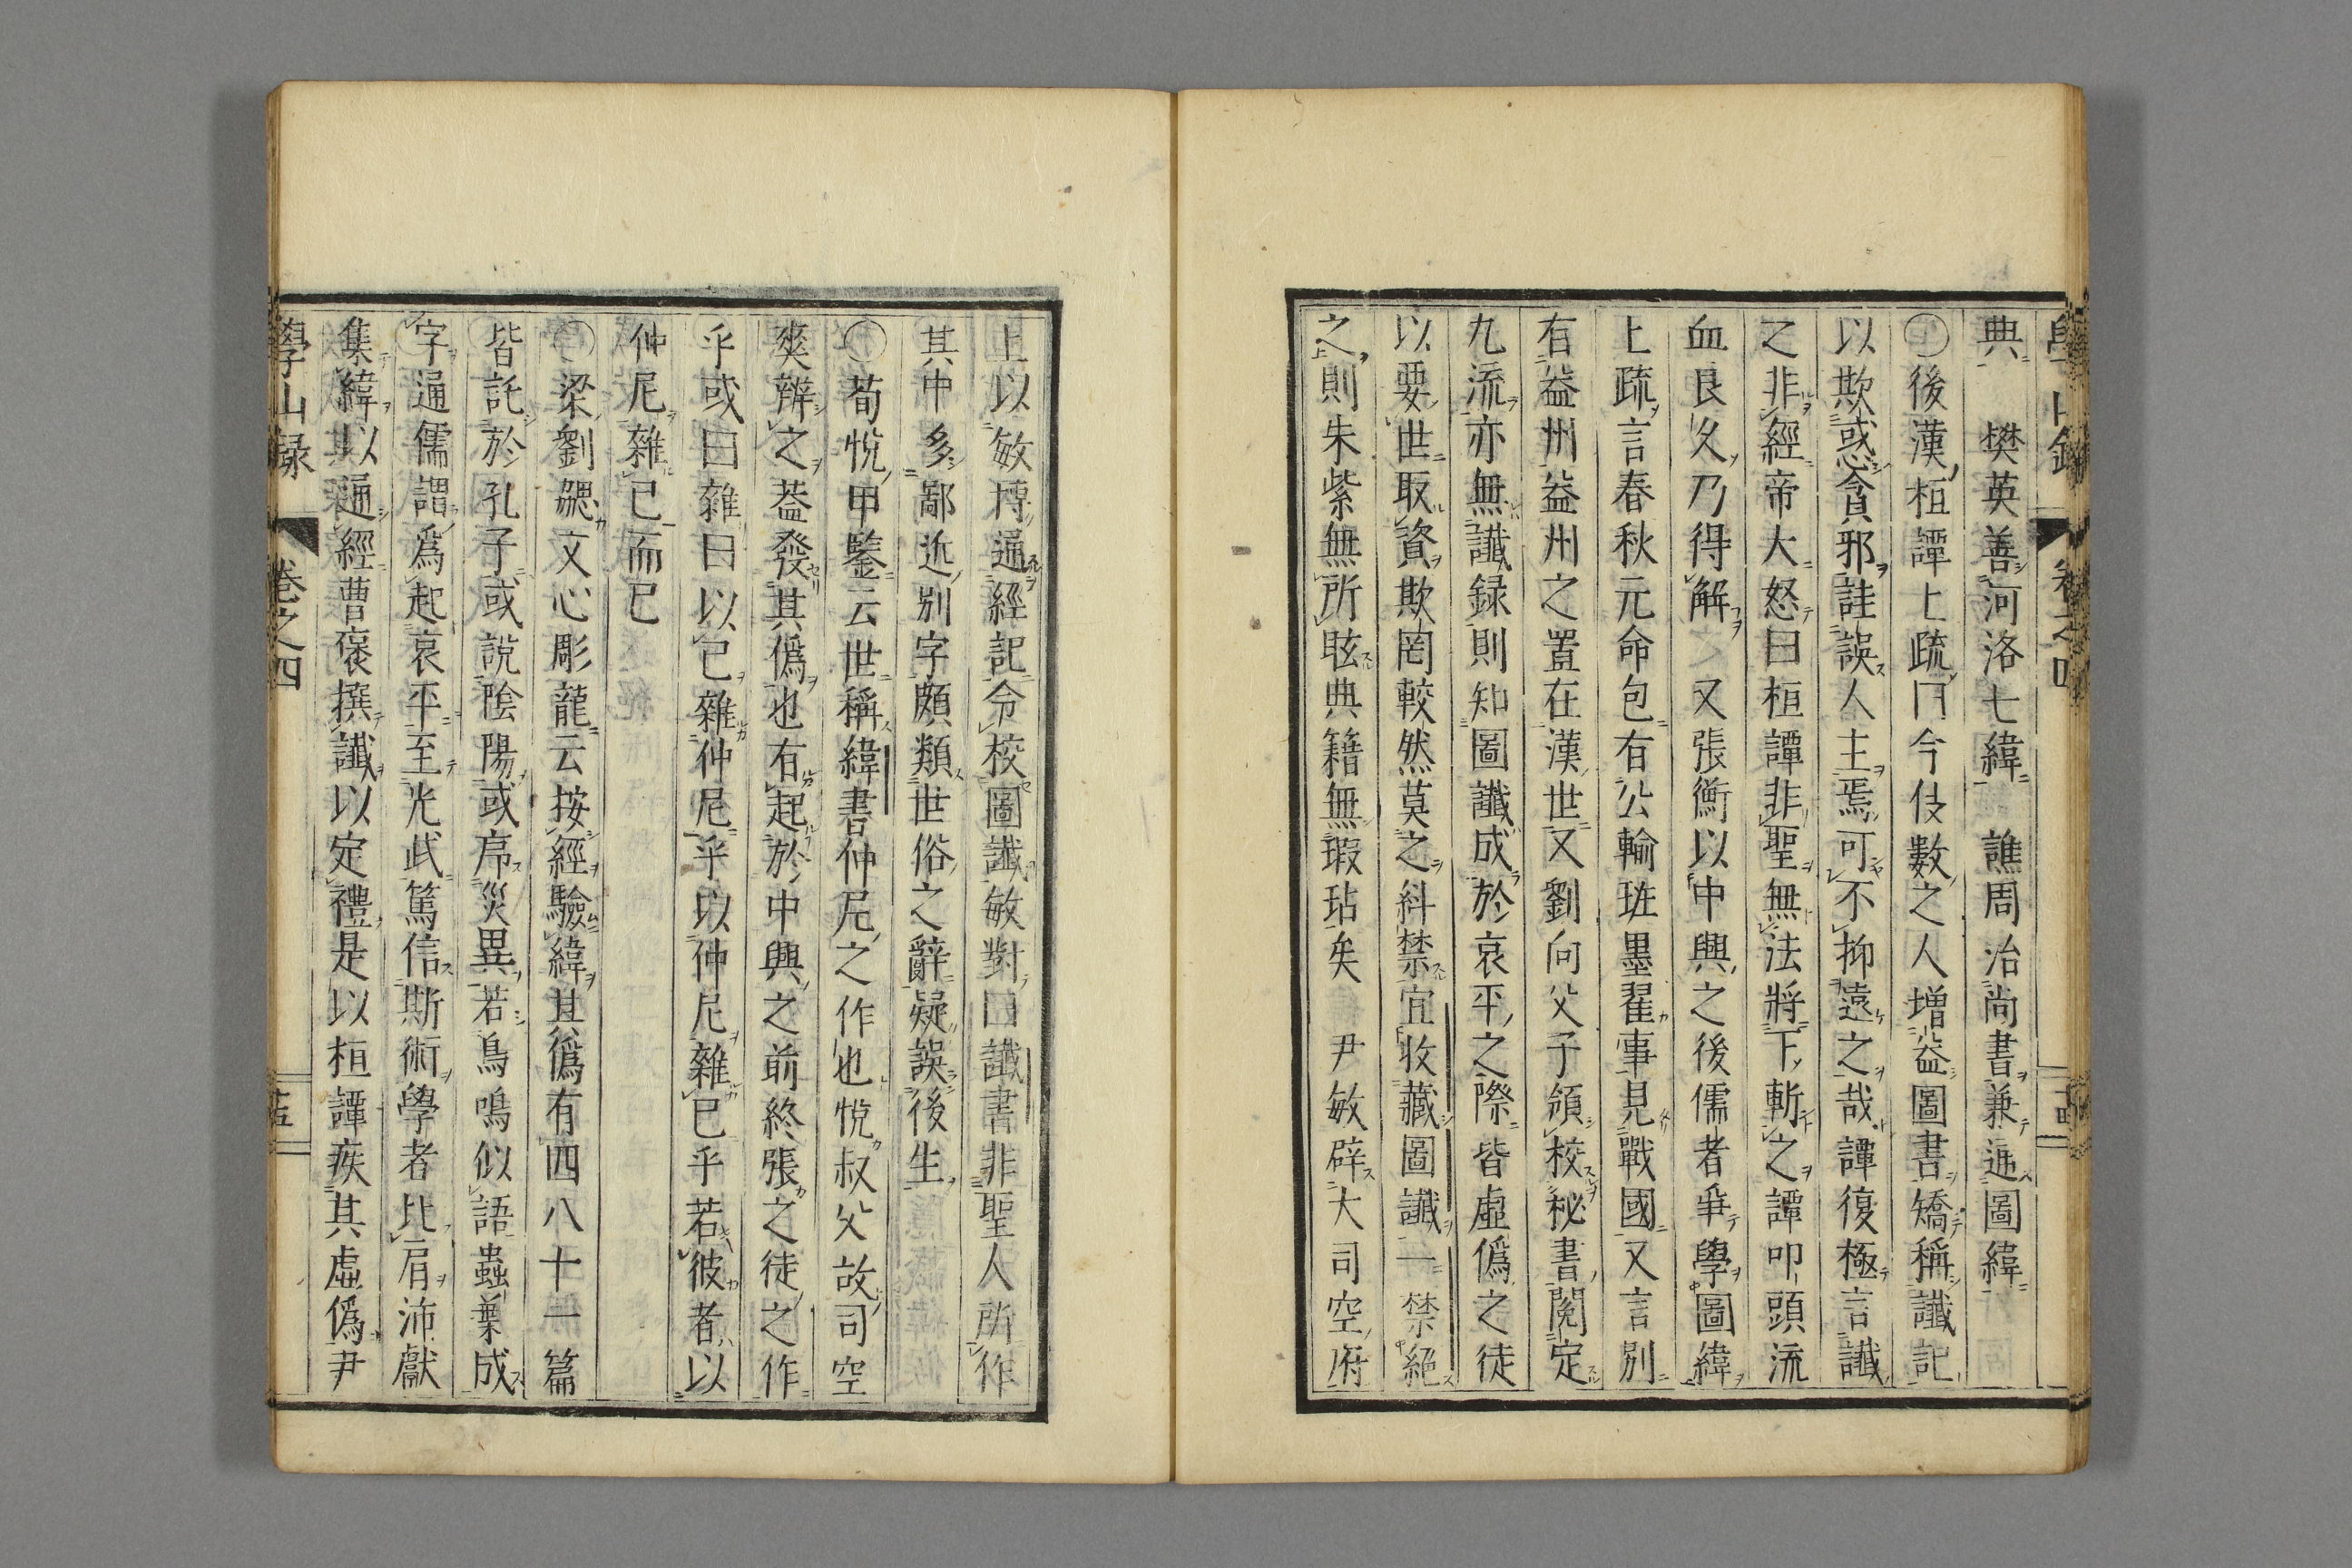 典　樊英善河洛七緯　譙周治尚書兼通圖緯
〇後漢桓譚上疏曰今伎數之人增益圖書矯稱讖記
以欺惑貪邪詿誤人主焉可不抑遠之哉譚復極言讖
之非經帝大怒曰桓譚非聖無法將下斬之譚叩頭流
血良久乃得解　又張衡以中興之後儒者爭學圖緯
上疏言春秋元命包有公輸班墨翟事見戰國又言別
有益州益州之置在漢世又劉向父子領校秘書閱定
九流亦無讖録則知圖讖成於哀平之際皆虛僞之徒
以要世取資欺罔較然莫之糾禁宜收藏圖讖一禁絕
之則朱紫無所眩典籍無瑕玷矣　尹敏辟大司空府
上以敏博通經記令校圖讖敏對曰讖書非聖人所作
其中多鄙近別字頗類世俗之辭疑誤後生
〇荀悅申鑒云世稱緯書仲尼之作也悅叔父故司空
爽辨之葢發其僞也有起於中興之前終張之徒之作
乎或曰雜曰以已雜仲尼乎以仲尼雜已乎若彼者以
仲尼雜已而已
〇梁劉勰文心彫龍云按經驗緯其僞有四八十一篇
皆託於孔子或說陰陽或序災異若鳥鳴似語蟲葉成
字通儒謂爲起哀平至光武篤信斯術學者比肩沛獻
集緯以通經曹褒撰讖以定禮是以桓譚疾其虛僞尹
學山録　卷之四